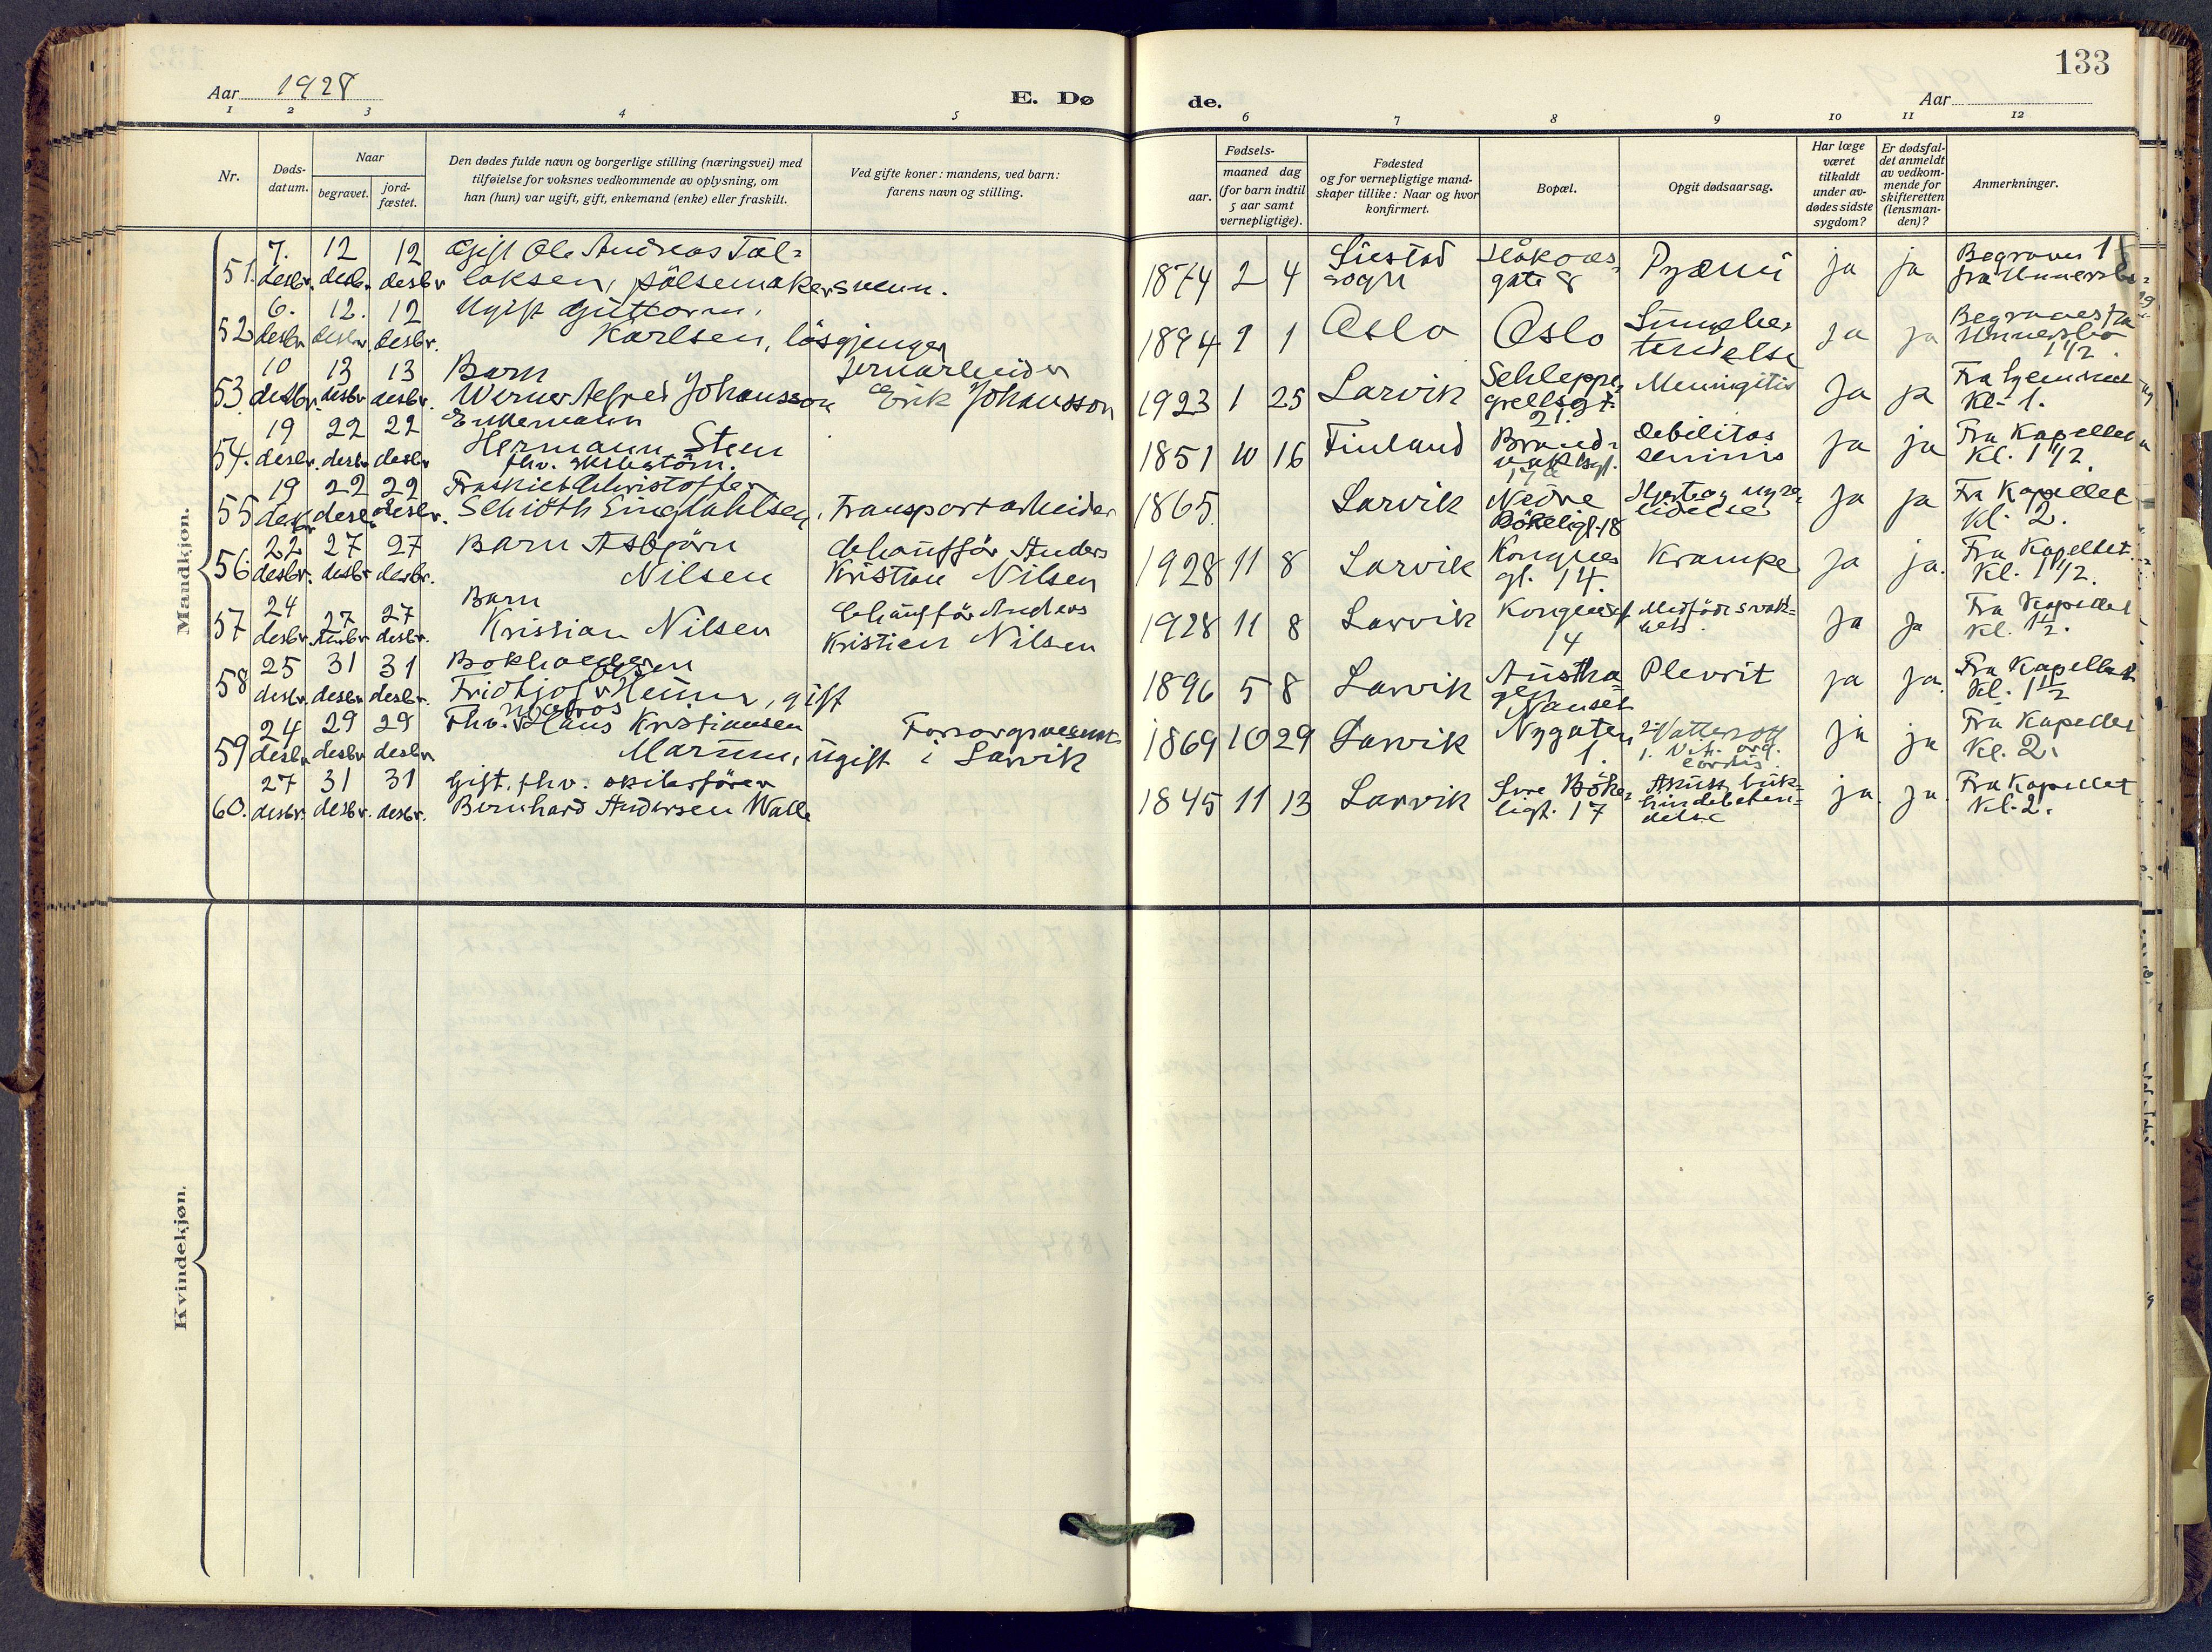 133
Aar 1928
E. Dø de.
Aar
1 2 3 4 5 6 7 8 9 10 11 12
Nr.
Døds-
datum.
Naar
begravet.
jord-
fæstet.
Den dødes fulde navn og borgerlige stilling (næringsvei) med
tilføielse for voksnes vedkommende av oplysning, om
han (hun) var ugift, gift, enkemand (enke) eller fraskilt.
Ved gifte koner: mandens, ved barn:
farens navn og stilling.
Fødsels-
aar.
maaned dag
(for barn indtil
5 aar samt
vernepligtige).
Fødested
og for vernepligtige mand-
skaper tillike: Naar og hvor
konfirmert.
Bopæl.
Opgit dødsaarsag.
Har læge
været
tilkaldt
under av-
dødes sidste
sygdom?
Er dødsfal-
det anmeldt
av vedkom-
mende for
skifteretten
(lensman-
den)?
Anmerkninger.
Mandkjøn.
51. 7. desbr. 12 desbr. 12 desbr
Gift Ole Andreas Tal-
laksen, pölsemakersvenn.
1874 2 4 sogn Håkons-
gate 8 Pyæmi ja ja Begraves
fra
52 6. desbr 12. desbr. 12 desbr.
Ugift Guttorm
Karlsen, løsgjenger
1894 1 Oslo Oslo Lungebe-
tendelse ja ja Begraves fra
1 1/2.
53. 10 desbr. 13 desbr 13 desbr.
Barn
Werner Alfred Johansson
Jernarbeider
Erik Johansson
1923 1 25 Larvik Schleppe-
grellsgt.
21. Meningitis Ja ja Fra hjemmet
Kl. 1.
54. 19 desbr. 22 desbr. 22 desbr
Enkemann
Hermann Sten
fhv.
1851 10 16 Finland Brand-
vaktsgt. debilitas
senimis Ja ja Fra Kapellet
Kl. 1 1/2.
55 19 desbr. 22 desbr. 22 desbr.
Fraskilt Christoffer
Schiöth Lingdahlsen, Transportarbeider
1865. Larvik Nedre
Bökeligt. 18 Hjerte og nyre-
lidelse ja ja Fra Kapellet
Kl. 2.
56 22 desbr. 27 desbr 27 desbr.
Barn Asbjørn
Nilsen
Chauffør Anders
Kristian Nilsen
1928 11 8 Larvik Konguess
gt. 14. Krampe ja ja. Fra Kapellet.
Kl. 1 1/2.
57 24 desbr. 27 desbr 27 desbr.
Barn
Kristian Nilsen
Chauffør Anders
Kristian Nilsen
1928 11 8 Larvik
14 Medfødt svak-
het. Ja Ja Fra Kapellet
Kl. 1 1/2.
58 25 desbr. 31 desbr 31 desbr.
Bokholder
Fridtjof Olsen , gift
1896 5 8 Larvik Nanset Plevrit ja ja. Fra Kapellet
Kl. 1 1/2
59 24 desbr 29 desbr 29 desbr
Fhv. matros Hans Kristiansen
Marum, ugift
Forsorgsvesenet
i Larvik
1869 10 29 Larvik Nygaten
1. 2. Vattersott
1. Vit. org.
cordis. ja ja Fra Kapellet
Kl. 2.
60. 27 desbr. 31 desbr. 31 desbr.
Gift, fhv. skibsfører
Bernhard Andersen Walle
1845 11 13 Larvik Øvre Böke-
ligt. 17 Akutt buk-
hindebeten-
delse ja. ja. Fra Kapellet
Kl. 2.
Kvindekjøn.